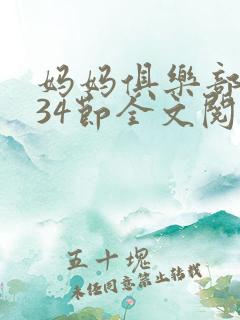 妈妈俱樂部
34節全文閱
五十塊
未经同意禁止转载